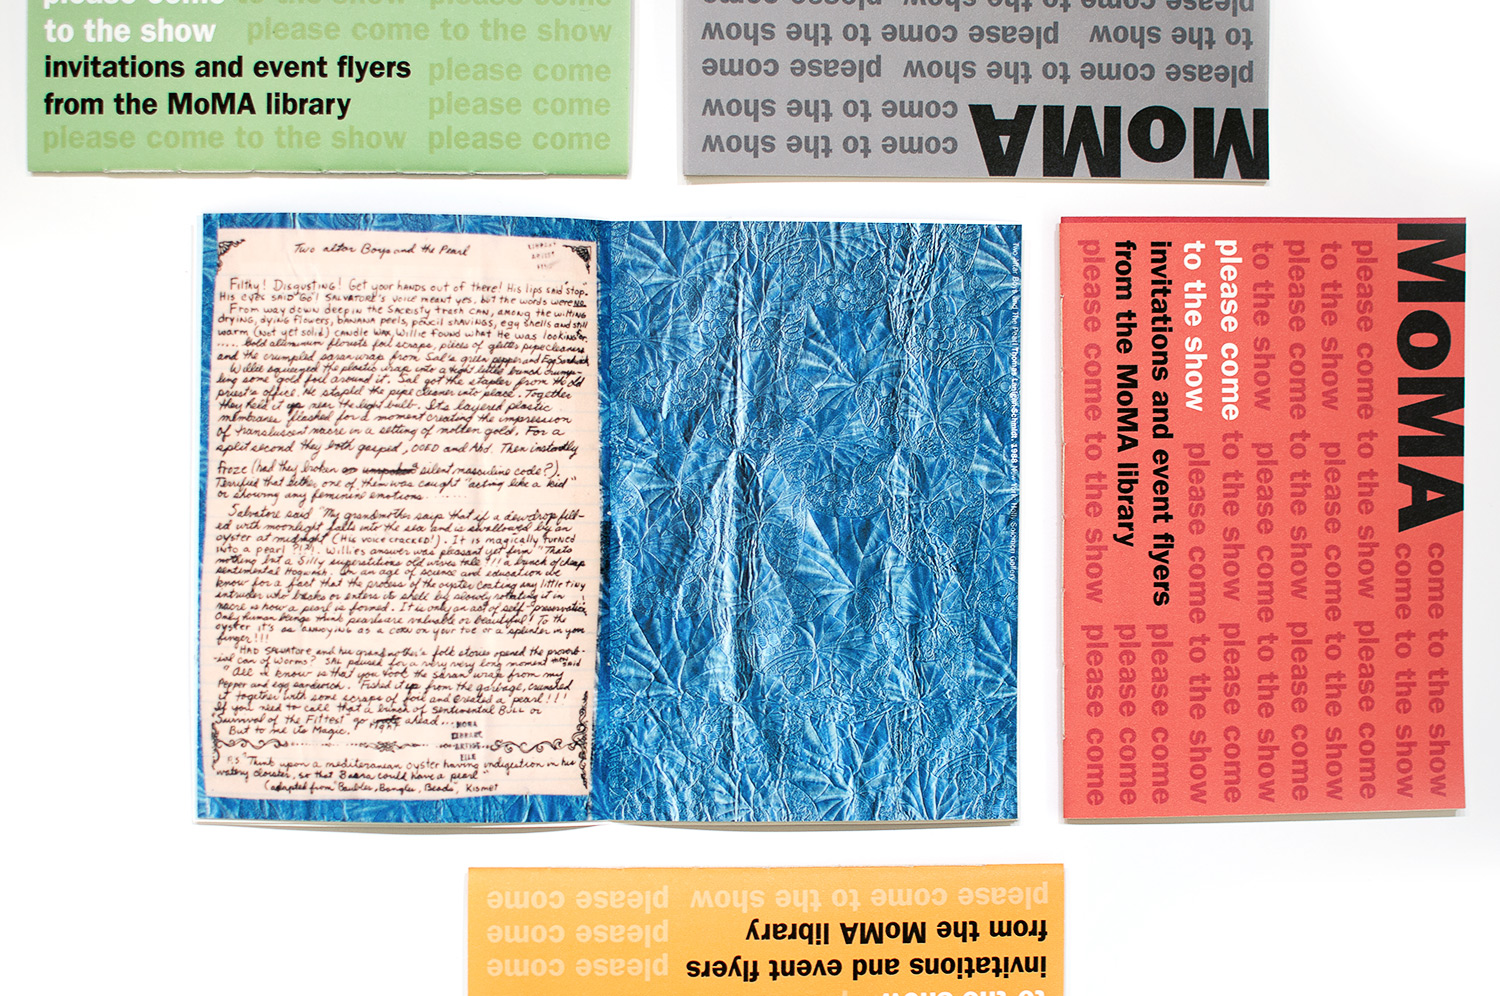 please come to the show please come
to the show please come to the show
invitations and event flyers please come
from the MoMA library please come
please come to the show please come
please come to the show please come
to the show please come to the show
please come to the show please come
come to the show
MoMA
come to the show
Two altar Boys and the Pearl
Filthy! Disgusting! Get your hands out of there! His lips said "stop."
His eyes said "Go"! SALVATORE'S voice meant yes, but the words were no.
From way down deep in the Sacristy trash can, among the wilting
drying, dying flowers, banana peels, pencil shavings, egg shells and still
warm (not yet solid) candle wax, Willie found what He was looking for.
..... Gold aluminum florists foil scraps, pieces of glitter pipecleaners
and the crumpled saran wrap from Sal's green pepper and Egg Sandwich
Willie squeezed the plastic wrap into a tight little bunch crump-
ling some gold foil around it. Sal got the stapler from the old
priest's office. He stapled the pipe cleaner into place. Together
they held it up near the light bulb. Its layered plastic
membranes flashed for a moment creating the impression
of transluscent nacre in a setting of molten gold. For a
split second they both gasped, OOED and Ahd. Then instantly
froze (had they broken silent masculine code?).
Terrified that either one of them was caught "acting like a kid"
or showing any feminine emotions.......
Salvatore said "My grandmother says that if a dewdrop fill-
ed with moonlight falls into the sea and is swallowed by an
oyster at midnight (His voice cracked!). It is magically turned
into a pearl ?!?!. Willies answer was pleasant yet firm "Thats
nothing but a Silly superstitious old wives tale!!! a bunch of cheap
sentimental Hogwash. In an age of science and education we
know for a fact that the process of the oyster coating any little tiny
intruder who breaks or enters its shell by slowly rotating it in
nacre is how a pearl is formed. It is only an act of self-preservation
Only human beings think pearls are valuable or beautiful! To the
oyster it's as annoying as a corn on your toe or a splinter in your
finger!!!
HAD SALVATORE and his grandmother's folk stories opened the proverb-
ial can of worms? SAL paused for a very very long moment then said
"All I know is that you took the saran wrap from my
Pepper and egg sandwich. Fished it up from the garbage, crumpled
it together with some scraps of foil and created a pearl!!!
If you need to call that a bunch of sentimental BULL or
"Survival of the Fittest" go right ahead...
But to me its Magic.
MOMA
LIBRARY
ARTIST
FILE
P.S. "Think upon a mediteranean oyster having indigestion in his
watery cloister, so that Basra could have a pearl"
(adapted from "Baubles, Bangles, Beads", Kismet
Two Altar Boys and The Pearl, Thomas Lanigan-Schmidt, 1988, New York, Holly Solomon Gallery
MoMA
come to the show
come to the show
please come to the show please come
to the show please come to the show
please come to the show please come
to the show please come to the show
please come to the show please come
to the show please come to the show
invitations and event flyers please come
from the MoMA library please come
please come to the show please come
please come to the show please come
from the MoMA library please come
invitations and event flyers please come
to the show